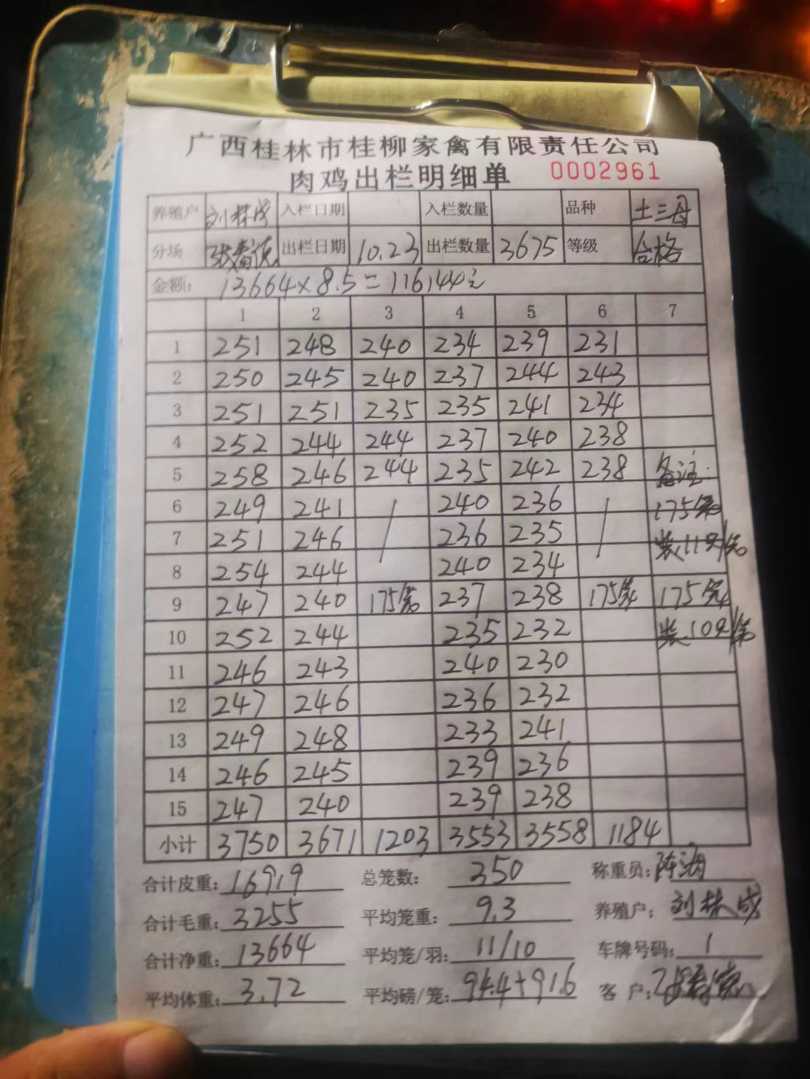 广西桂林市桂柳家禽有限责任公司
肉鸡出栏明细单 0002961
养殖户 刘林成 入栏日期 入栏数量 品种 土三母
分场 出栏日期 10.23 出栏数量 3675 等级 合格
金额: 13664×8.5=116144元
1 2 3 4 5 6 7
1 251 248 240 234 239 231
2 250 245 240 237 244 243
3 251 251 235 235 241 234
4 252 244 244 237 240 238
5 258 246 244 235 242 238 备注:
6 249 241 / 240 236 / 175笼
7 251 246 236 235 装11只/笼
8 254 244 240 234
9 247 240 175笼 237 238 175笼 175笼
10 252 244 235 232 装10只/笼
11 246 243 240 230
12 247 246 236 232
13 249 248 233 241
14 246 245 239 236
15 247 240 239 238
小计 3750 3671 1203 3553 3558 1184
合计皮重: 16919 总笼数: 350 称重员: 陈
合计毛重: 3255 平均笼重: 9.3 养殖户: 刘林成
合计净重: 13664 平均笼/羽: 11/10 车牌号码: 1
平均体重: 3.72 平均磅/笼: 94.4+91.6 客户: